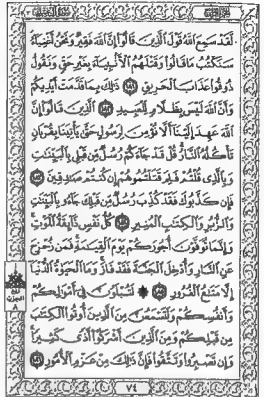 لَّقَدْ سَمِعَ ٱللَّهُ قَوْلَ ٱلَّذِينَ قَالُوٓا۟ إِنَّ ٱللَّهَ فَقِيرٌ وَنَحْنُ أَغْنِيَآءُ
سَنَكْتُبُ مَا قَالُوا۟ وَقَتْلَهُمُ ٱلْأَنۢبِيَآءَ بِغَيْرِ حَقٍّ وَنَقُولُ
ذُوقُوا۟ عَذَابَ ٱلْحَرِيقِ ١٨١ ذَٰلِكَ بِمَا قَدَّمَتْ أَيْدِيكُمْ
وَأَنَّ ٱللَّهَ لَيْسَ بِظَلَّامٍ لِّلْعَبِيدِ ١٨٢ ٱلَّذِينَ قَالُوٓا۟ إِنَّ
ٱللَّهَ عَهِدَ إِلَيْنَآ أَلَّا نُؤْمِنَ لِرَسُولٍ حَتَّىٰ يَأْتِيَنَا بِقُرْبَانٍ
تَأْكُلُهُ ٱلنَّارُ قُلْ قَدْ جَآءَكُمْ رُسُلٌ مِّن قَبْلِى بِٱلْبَيِّنَٰتِ
وَبِٱلَّذِى قُلْتُمْ فَلِمَ قَتَلْتُمُوهُمْ إِن كُنتُمْ صَٰدِقِينَ ١٨٣
فَإِن كَذَّبُوكَ فَقَدْ كُذِّبَ رُسُلٌ مِّن قَبْلِكَ جَآءُو بِٱلْبَيِّنَٰتِ
وَٱلزُّبُرِ وَٱلْكِتَٰبِ ٱلْمُنِيرِ ١٨٤ كُلُّ نَفْسٍ ذَآئِقَةُ ٱلْمَوْتِ
وَإِنَّمَا تُوَفَّوْنَ أُجُورَكُمْ يَوْمَ ٱلْقِيَٰمَةِ فَمَن زُحْزِحَ
عَنِ ٱلنَّارِ وَأُدْخِلَ ٱلْجَنَّةَ فَقَدْ فَازَ وَمَا ٱلْحَيَوٰةُ ٱلدُّنْيَآ
إِلَّا مَتَٰعُ ٱلْغُرُورِ ١٨٥ ۞ لَتُبْلَوُنَّ فِىٓ أَمْوَٰلِكُمْ
وَأَنفُسِكُمْ وَلَتَسْمَعُنَّ مِنَ ٱلَّذِينَ أُوتُوا۟ ٱلْكِتَٰبَ
مِن قَبْلِكُمْ وَمِنَ ٱلَّذِينَ أَشْرَكُوٓا۟ أَذًى كَثِيرًا
وَإِن تَصْبِرُوا۟ وَتَتَّقُوا۟ فَإِنَّ ذَٰلِكَ مِنْ عَزْمِ ٱلْأُمُورِ ١٨٦
٧٤